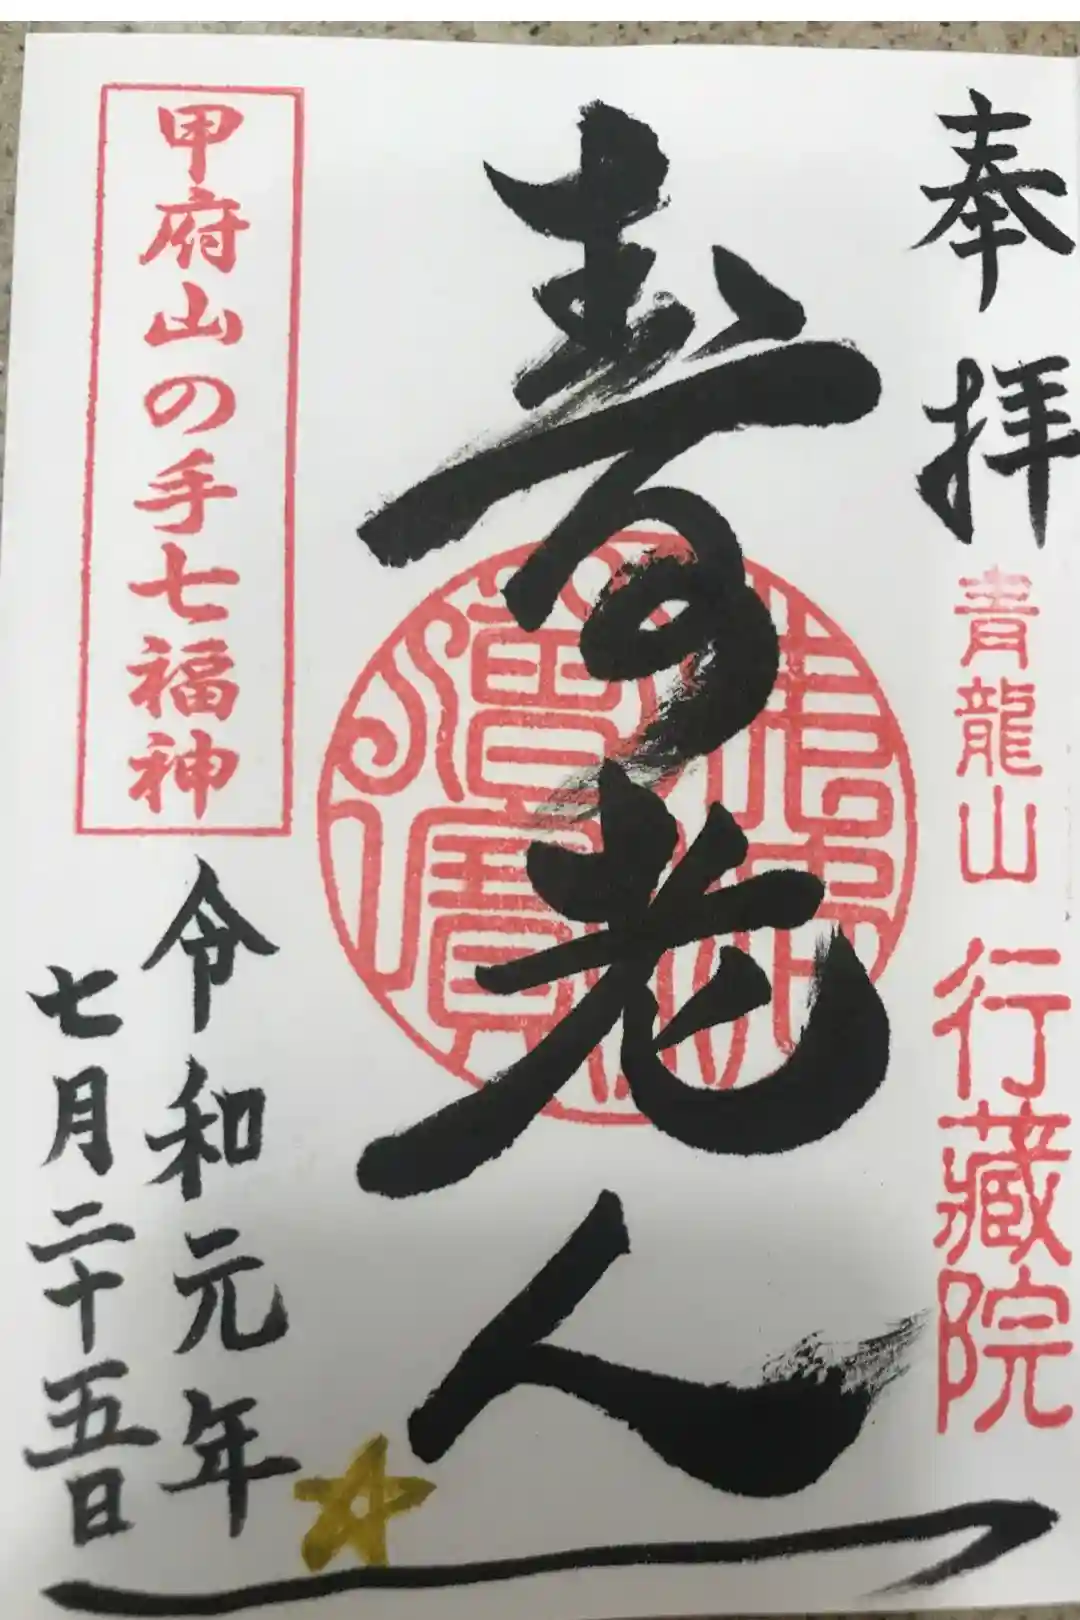 奉拝
青龍山 行藏院
寿老人
令和元年
七月二十五日
甲府山の手七福神